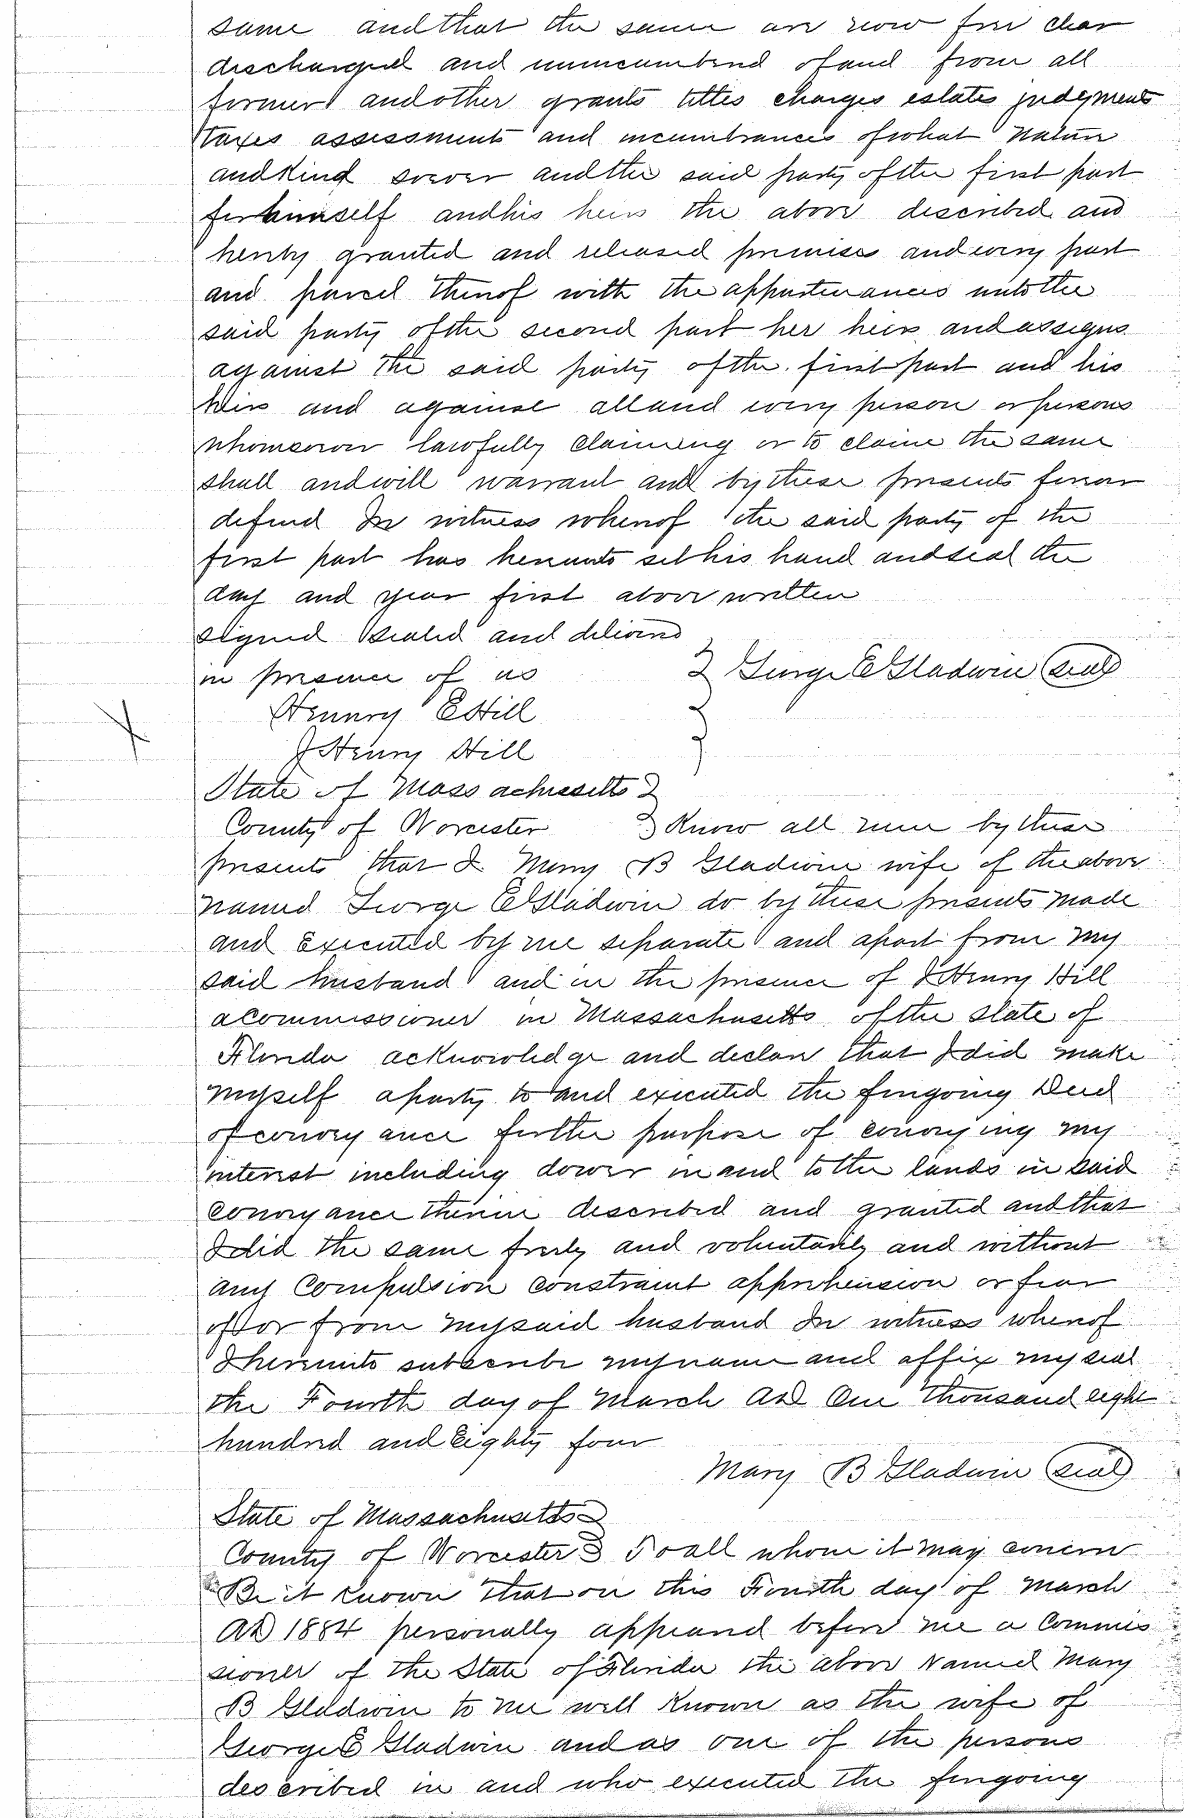 same and that the same are now free clear
discharged and unincumbered of and from all
former and other grants titles charges estates judgments
taxes assessments and incumbrances of what nature
and kind soever and the said party of the first part
for himself and his heirs the above described and
hereby granted and released premises and every part
and parcel thereof with the appurtenances unto the
said party of the second part her heirs and assigns
against the said party of the first part and his
heirs and against all and every person or persons
whomsoever lawfully claiming or to claim the same
shall and will warrant and by these presents forever
defend In witness whereof the said party of the
first part has hereunto set his hand and seal the
day and year first above written
signed sealed and delivered
in presence of us George E Gladwin seal
Hennry E Hill
J Henry Hill
State of Massachusetts
County of Worcester Know all men by these
presents that I Mary B Gladwin wife of the above
named George E Gladwin do by these presents made
and executed by me separate and apart from my
said husband and in the presence of J Henry Hill
a commissioner in Massachusetts of the State of
Florida acknowledge and declare that I did make
myself a party to and executed the foregoing Deed
of conveyance for the purpose of conveying my
interest including dower in and to the lands in said
conveyance therein described and granted and that
I did the same freely and voluntarily and without
any compulsion constraint apprehension or fear
of or from my said husband In witness whereof
I hereunto subscribe my name and affix my seal
the Fourth day of March AD One thousand eight
hundred and Eighty four
Mary B Gladwin seal
State of Massachusetts
County of Worcester To all whom it may concern
Be it known that on this Fourth day of March
AD 1884 personally appeared before me a Commis
sioner of the State of Florida the above named Mary
B Gladwin to me well known as the wife of
George E Gladwin and as one of the persons
described in and who executed the foregoing